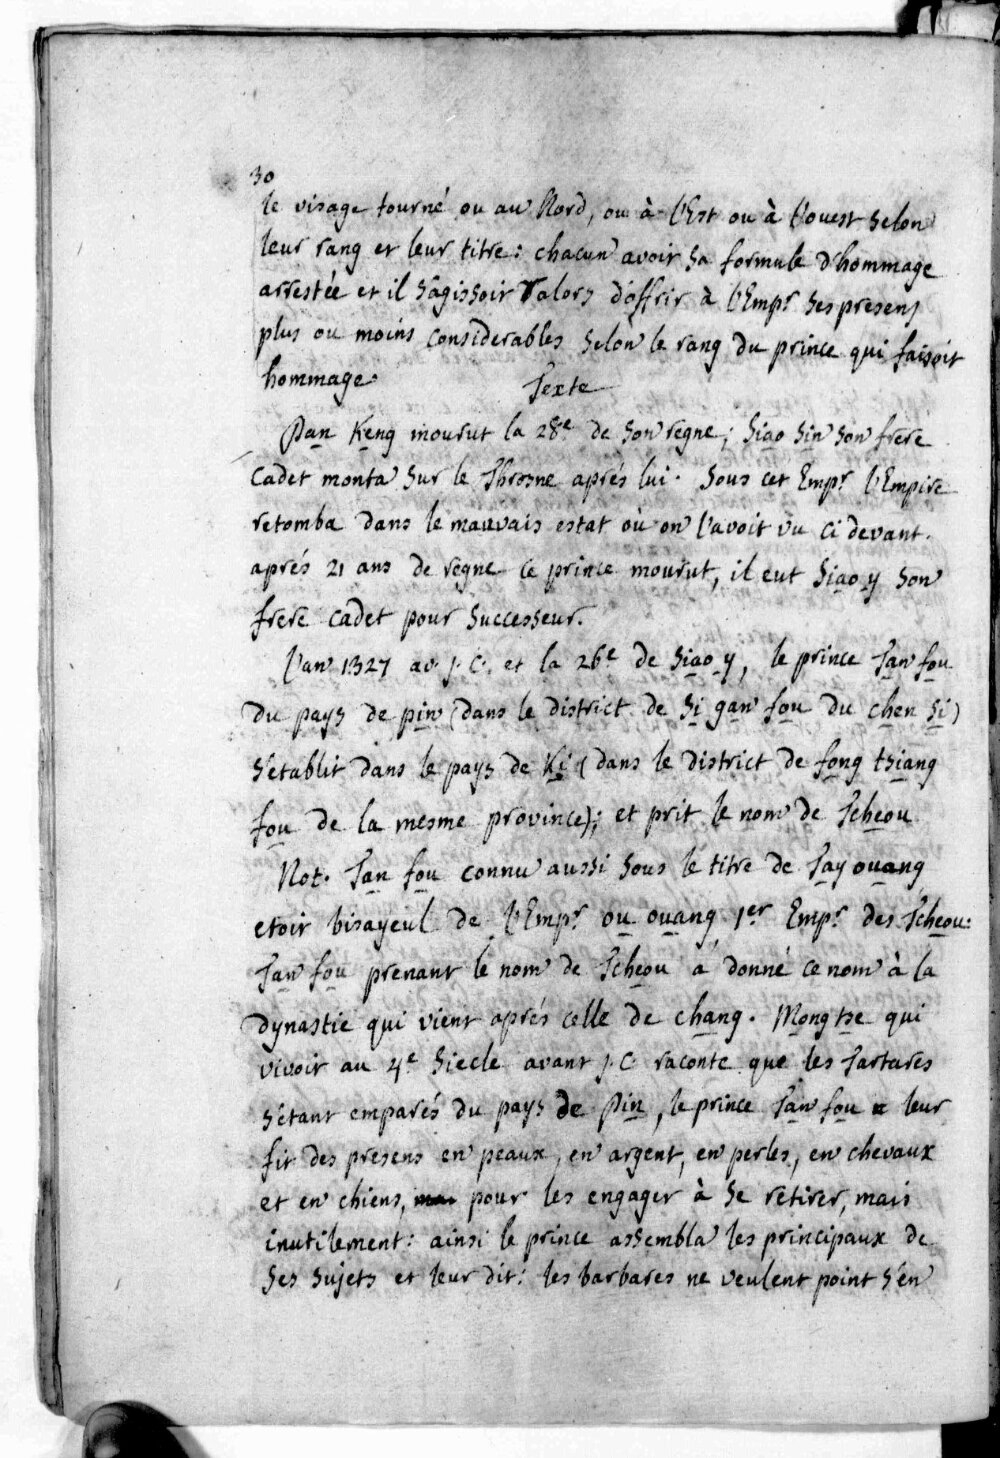 30
le visage tourné ou au Nord, ou à l'Est ou à l'ouest selon
leur rang et leur titre: chacun avoit sa formule d'hommage
arrestée et il s'agissoit alors d'offrir à l'Empr ses presens
plus ou moins considerables selon le rang du prince qui faisoit
hommage.
Texte
Pan Keng mourut la 28e de son regne; Siao Sin son frere
cadet monta sur le Throsne aprés lui. Sous cet Empr l'Empire
retomba dans le mauvais estat où on l'avoit vu ci devant.
aprés 21 ans de regne ce prince mourut, il eut Siao y son
frere cadet pour successeur.
l'an 1327 av. J. C. et la 26e de Siao y, le prince Tan fou
du pays de pin (dans le district de Si gan fou du chen si)
s'etablit dans le pays de Ki (dans le district de fong tsiang
fou de la mesme province); et prit le nom de Tcheou
Not. Tan fou connu aussi sous le titre de Tay ouang
etoit bisayeul de l'Empr ou ouang 1er Empr des Tcheou:
Tan fou prenant le nom de Tcheou a donné ce nom à la
dynastie qui vient aprés celle de chang. Mong tse qui
vivoit au 4e Siecle avant J. C. raconte que les Tartares
s'etant emparés du pays de Pin, le prince Tan fou leur
fit des presens en peaux, en argent, en perles, en chevaux
et en chiens, pour les engager à se retirer, mais
inutilement: ainsi le prince assembla les principaux de
ses sujets et leur dit: les barbares ne veulent point s'en